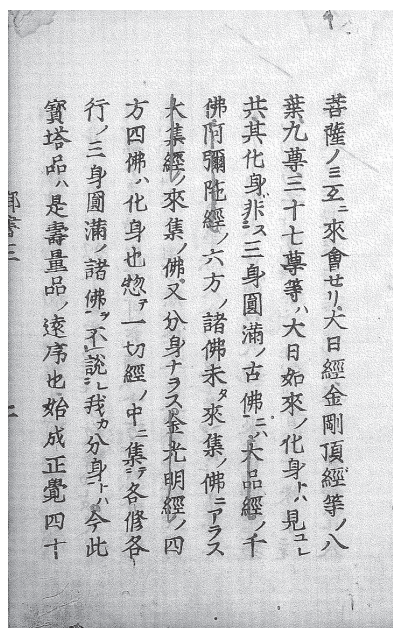 菩薩ノミ互ニ來會せリ大日經金剛頂經等ノ八
葉九尊三十七尊等ハ大日如來ノ化身トハ見ユレ
共其化身非ス三身圓滿ノ古佛ニハ大品經ノ千
佛阿彌陀經ノ六方ノ諸佛未タ來集ノ佛ニアラス
大集經ノ來集ノ佛又分身ナラス金光明經ノ四
方四佛ハ化身也惣テ一切經ノ中ニ集テ各修各
行ノ三身圓滿ノ諸佛ヲ不説レ我カ分身トハ今此
寶塔品ハ是壽量品ノ遠序也始成正覺四十